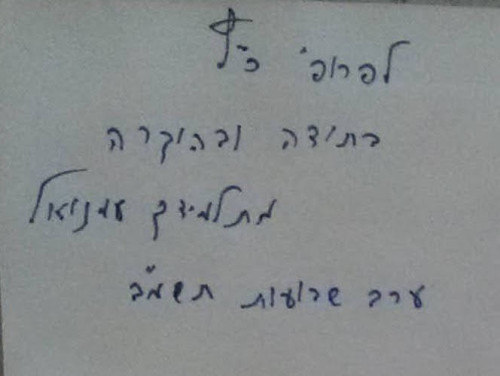 לפרופ' כ"ץ
בתודה ובהוקרה
מתלמידך עמנואל
ערב שבועות תשמ"ב